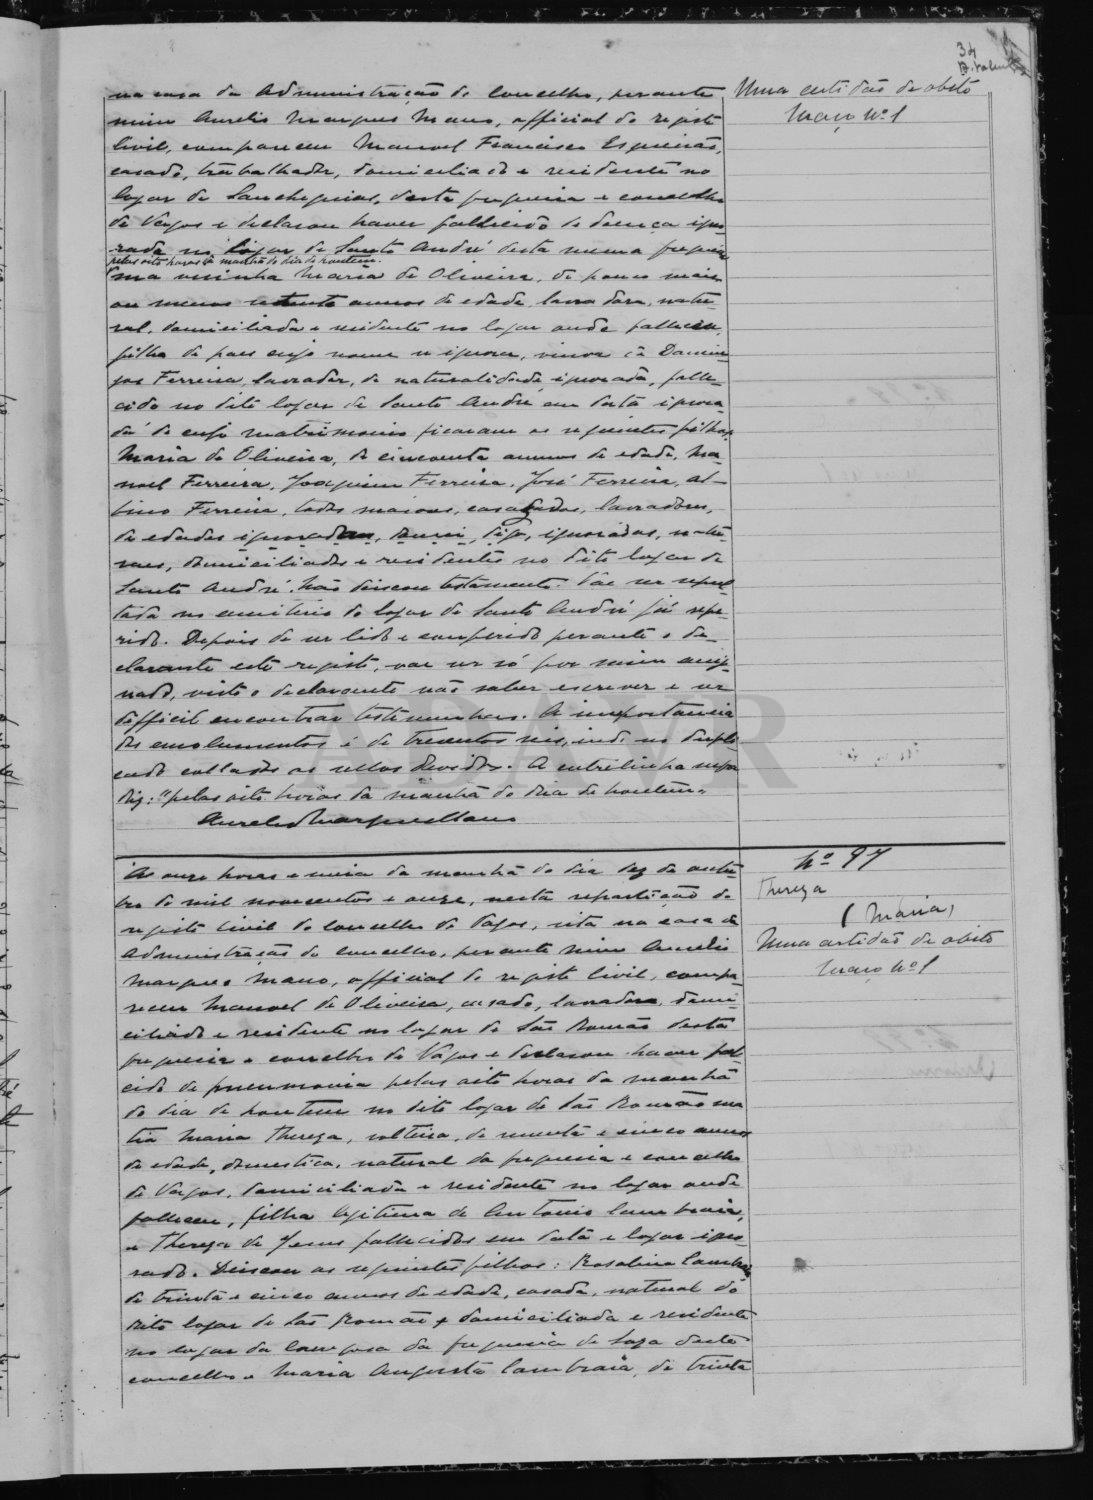 34
na casa da Administração do Concelho, perante
mim Aurelio Marques Mano, official do registo
civil, compareceu Manoel Francisco Esgueirão,
casado, trabalhador, domiciliado e residente no
logar de Sanchequias, desta freguesia e concelho
de Vagos e declarou haver fallecido de doença igno-
rada no logar de Santo André desta mesma freguesia
pelas oito horas da manhã do dia de hontem.
uma visinha Maria de Oliveira, de pouco mais
ou menos annos de edade, lavradora, natu-
ral, domiciliada e residente no logar onde falleceu,
filha de paes cujo nome se ignora, viuva de Domin-
gos Ferreira, lavrador, de naturalidade ignorada, falle-
cido no dito logar de Santo André em data ignora-
da e de cujo matrimonio ficaram os seguintes filhos,
Maria de Oliveira, de cincoenta annos de edade, Ma-
noel Ferreira, Joaquim Ferreira, José Ferreira, Al-
bino Ferreira, todos maiores, casados, lavradores,
de edades ignoradas, digo, ignoradas, natu-
raes, domiciliados e residentes no dito logar de
Santo André. Não deixou testamento. Vae ser sepul-
tada no cemiterio do logar de Santo André já refe-
rido. Depois de ser lido e conferido perante o de-
clarante este registo, vae ser só por mim assig-
nado, visto o declarante não saber escrever e ser
difficil encontrar testemunhas. A importancia
dos emolumentos é de trezentos reis, indo no dupli-
cado collados os sellos devidos. A entrelinha supra
diz: "pelas oito horas da manhã do dia de hontem"
Aurelio Marques Mano
Uma certidão de obito
Maço Nº 1
Ás onze horas e meia da manhã do dia dez de outu-
bro de mil novecentos e onze, nesta repartição do
registo civil do concelho de Vagos, sita na casa da
Administração do concelho, perante mim Aurelio
Marques Mano, official do registo civil, compa-
receu Manoel de Oliveira, casado, lavrador, domi-
ciliado e residente no logar de São Romão desta
freguesia e concelho de Vagos e declarou haver fal-
cido de pneumonia pelas oito horas da manhã
do dia de hontem no dito logar de São Romão sua
tia Maria Thereza, solteira, de e cinco annos
de edade, domestica, natural da freguesia e concelho
de Vagos, domiciliada e residente no logar onde
falleceu, filha legitima de Antonio Cambraia,
e Thereza de Jesus fallecidos em data e logar igno-
rado. Deixou os seguintes filhos: Rosalina Cambraia
de trinta e cinco annos de edade, casada, natural do
dito logar de São Romão e domiciliada e residente
no logar da da freguesia de Soza deste
concelho e Maria Augusta Cambraia, de trinta
Nº 97
Thereza
(Maria)
Uma certidão de obito
Maço Nº 1
ADAVR